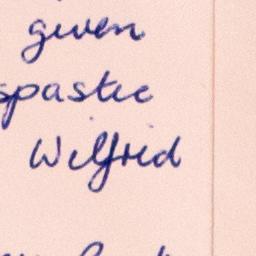 given
spastic
Wilfrid